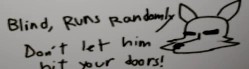 Blind, Runs Randomly
Don't let him
hit your doors!